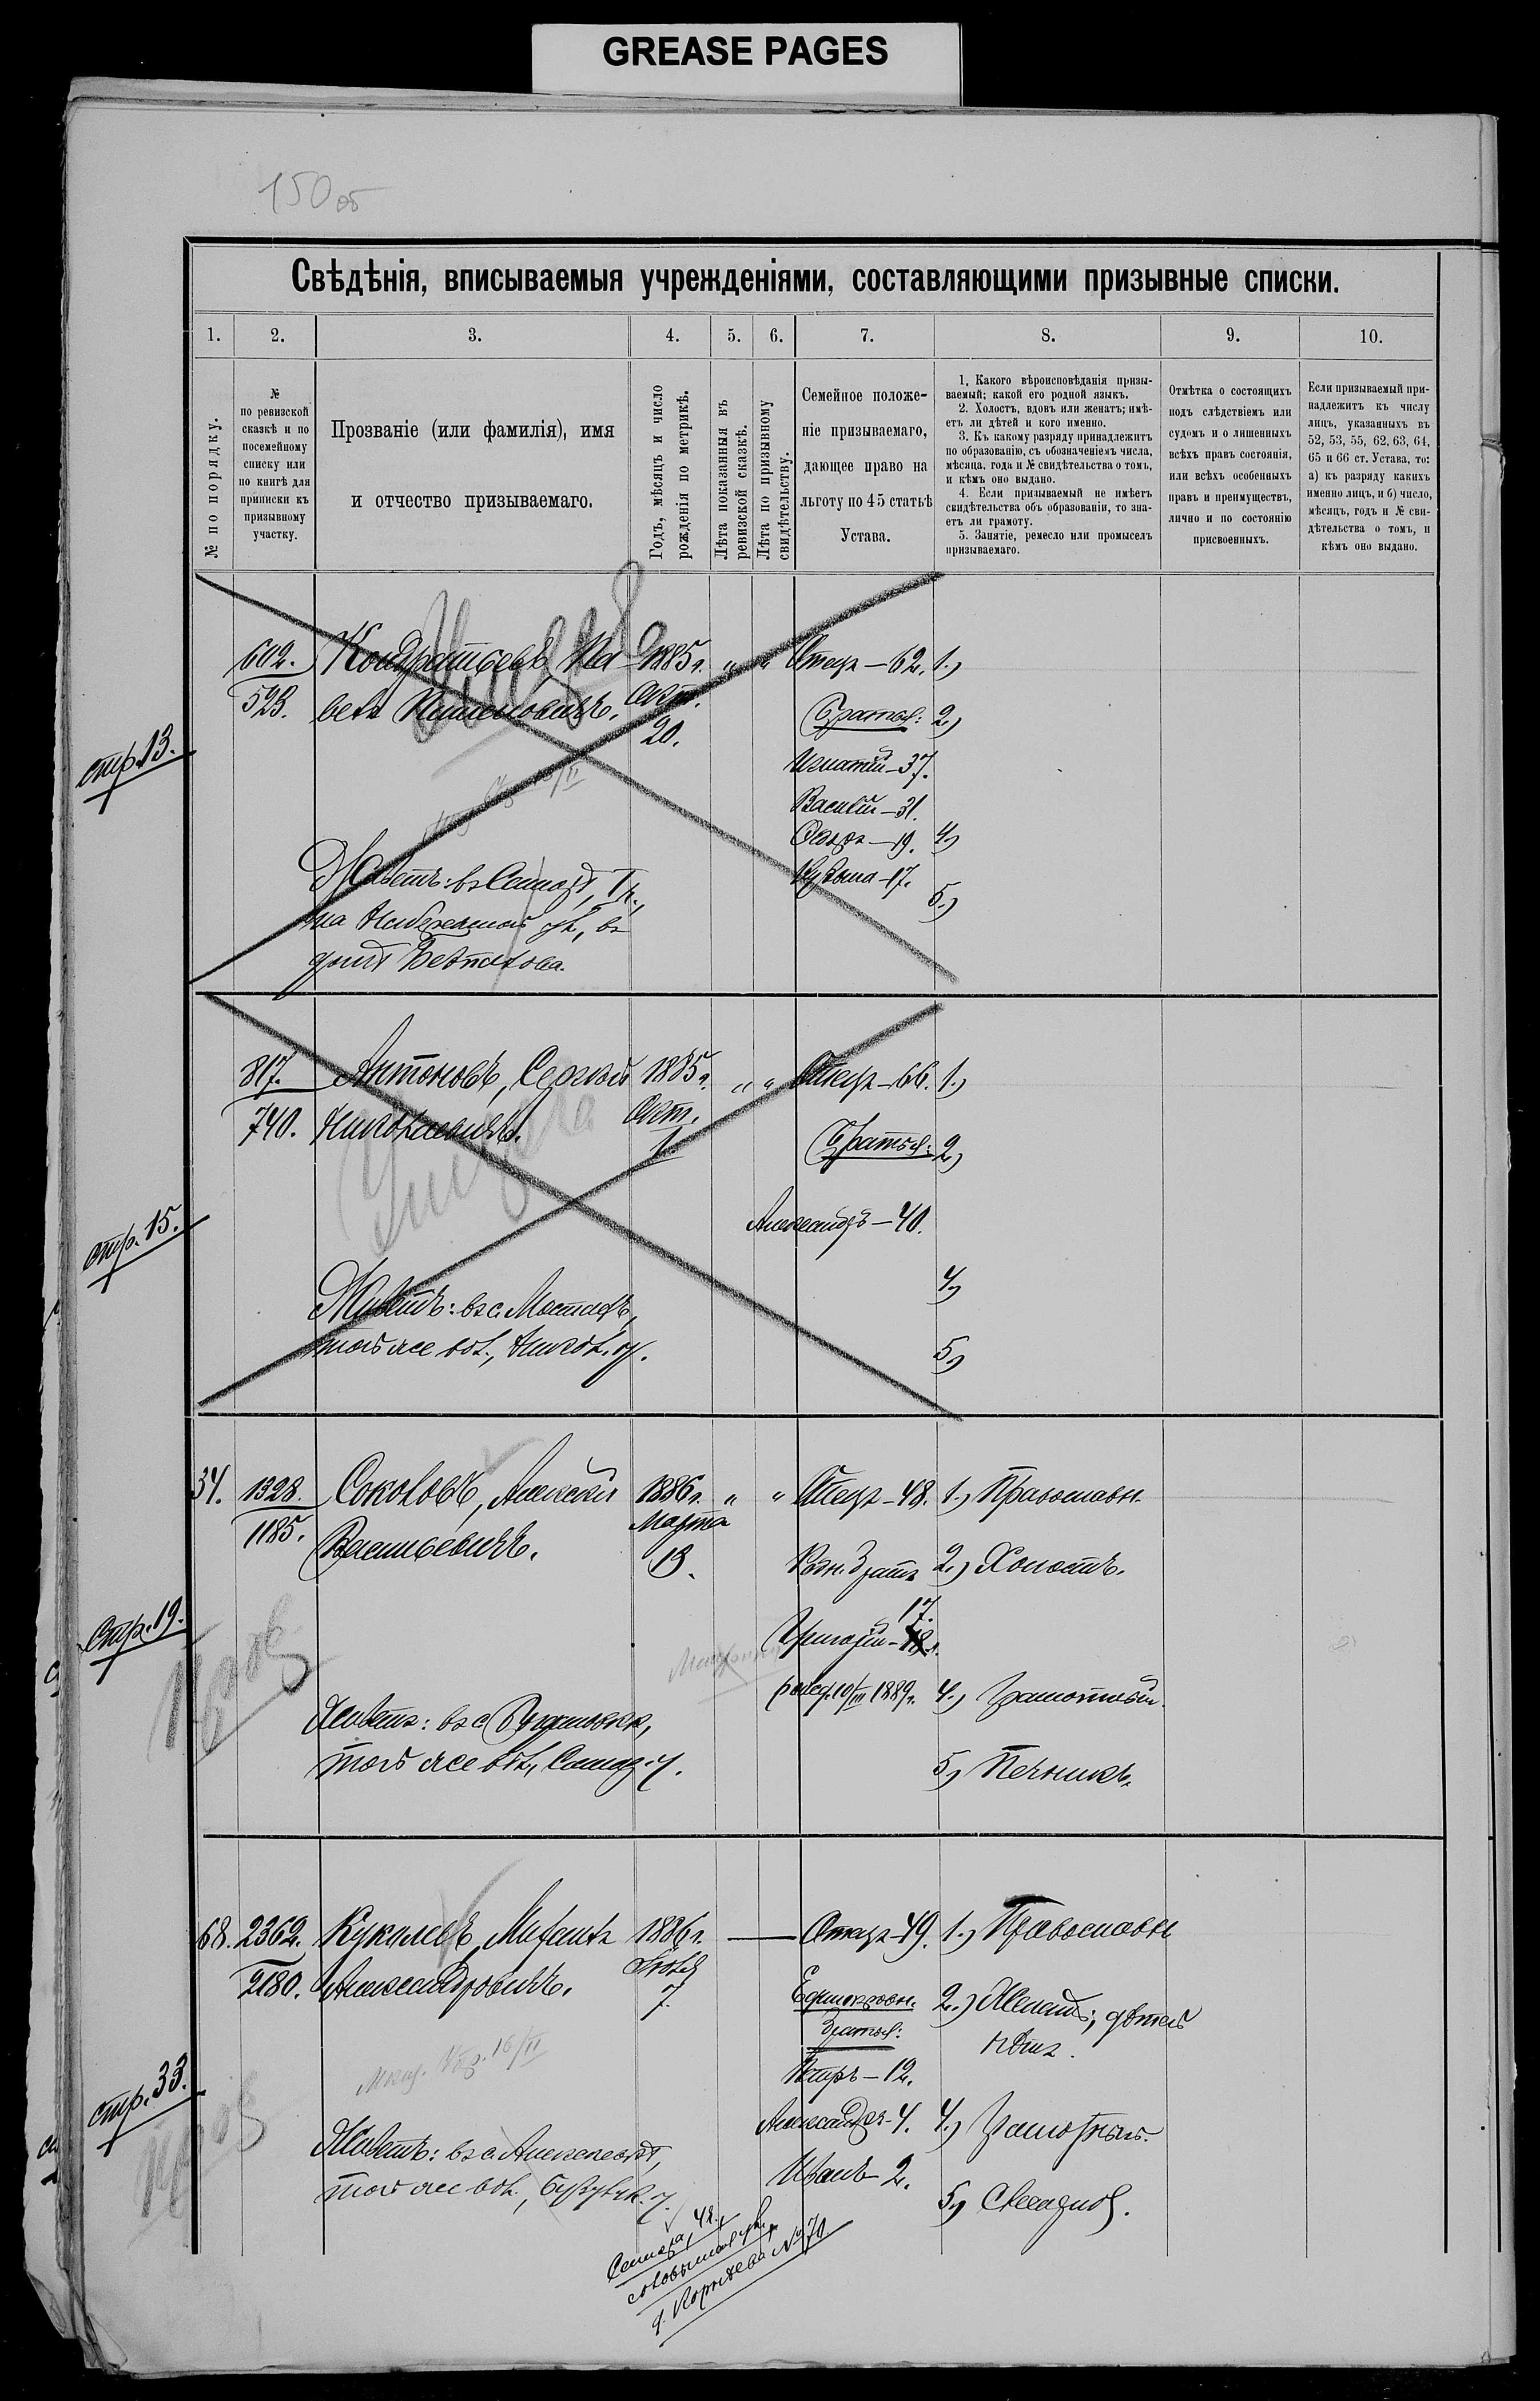 GREASE PAGES
150 об
Свѣдѣнія, вписываемыя учрежденіями, составляющими призывные списки.
1. 2. 3. 4. 5. 6. 7. 8. 9. 10.
№ по порядку.
№
по ревизской
сказкѣ и по
посемейному
списку или
по книгѣ для
приписки къ
призывному
участку.
Прозваніе (или фамилія), имя
и отчество призываемаго.
Годъ, мѣсяцъ и число
рожденія по метрикѣ.
Лѣта показанныя въ
ревизской сказкѣ.
Лѣта по призывному
свидѣтельству.
Семейное положе-
ніе призываемаго,
дающее право на
льготу по 45 статьѣ
Устава.
1. Какого вѣроисповѣданія призы-
ваемый; какой его родной языкъ.
2. Холостъ, вдовъ или женатъ; имѣ-
етъ ли дѣтей и кого именно.
3. Къ какому разряду принадлежитъ
по образованію, съ обозначеніемъ числа,
мѣсяца, года и № свидѣтельства о томъ,
и кѣмъ оно выдано.
4. Если призываемый не имѣетъ
свидѣтельства объ образованіи, то зна-
етъ ли грамоту.
5. Занятіе, ремесло или промыселъ
призываемаго.
Отмѣтка о состоящихъ
подъ слѣдствіемъ или
судомъ и о лишенныхъ
всѣхъ правъ состоянія,
или всѣхъ особенныхъ
правъ и преимуществъ,
лично и по состоянію
присвоенныхъ.
Если призываемый при-
надлежитъ къ числу
лицъ, указанныхъ въ
52, 53, 55, 62, 63, 64,
65 и 66 ст. Устава, то:
а) къ разряду какихъ
именно лицъ, и б) число,
мѣсяцъ, годъ и № сви-
дѣтельства о томъ, и
кѣмъ оно выдано.
стр. 13.
602. Кондратьевъ, Па- 1885 г. " " Отецъ – 62. 1.)
523. велъ Пименовичъ. Окт.
20.
Братья: 2.)
Игнатій – 37.
Василій – 31.
– 19. 4)
Кузьма – 17.
5.)
Живетъ: въ Самарѣ,
на ул., въ
домѣ
стр. 15.
817. Антоновъ, Сергѣй 1885 г. " " Отецъ – 66. 1.)
740. Николаевичъ. Окт.
1.
Братья: 2)
Александръ – 40.
4)
Живетъ: въ с. Мостахъ,
той же вол., Никол. у.
5)
стр. 19.
34. 1328. Соколовъ, Алексѣй 1886 г. " " Отецъ – 48. 1.) Православн.
1185. Васильевичъ. Марта
13.
Родн. братъ 2.) Холостъ.
17.
Григорій – 18.
рожд. 10/III 1889 г. 4.) Грамотный.
Живетъ: въ с.
той же вол., Самар. у.
5) Печникъ.
стр. 33.
68. 2362. Кукалевъ, Михаилъ 1886 г. — Отецъ – 49. 1.) Православн
2180. Александровичъ. Іюля
7.
Единокровн. 2.) Женатъ; дѣтей
братья: нѣтъ.
16/II
Петръ – 12.
Александръ – 4. 4.) Грамотный.
Живетъ: въ с. Алексѣевкѣ,
той же вол., Бузулук. у.
Иванъ – 2.
5)
Самара
№ 70